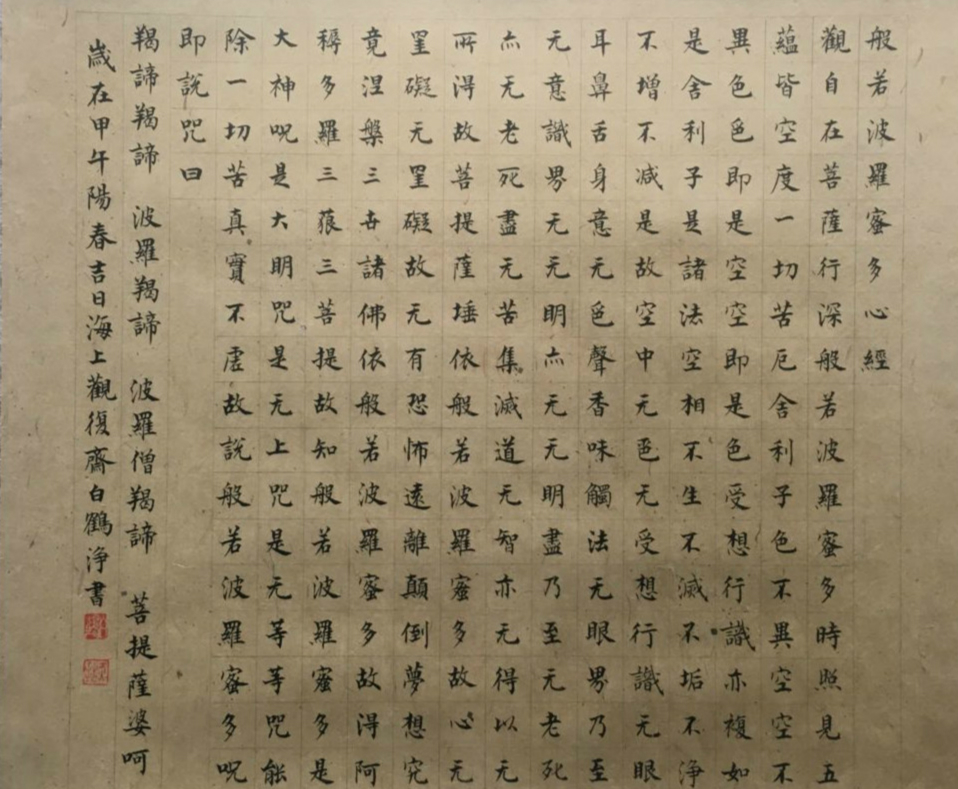 般若波羅蜜多心經
觀自在菩薩行深般若波羅蜜多時照見五
蘊皆空度一切苦厄舍利子色不異空空不
異色色即是空空即是色受想行識亦複如
是舍利子是諸法空相不生不滅不垢不浄
不增不减是故空中无色无受想行識无眼
耳鼻舌身意无色聲香味觸法无眼界乃至
无意識界无无明亦无无明盡乃至无老死
亦无老死盡无苦集滅道无智亦无得以无
所得故菩提薩埵依般若波羅蜜多故心无
罣礙无罣礙故无有恐怖遠離顛倒夢想究
竟涅槃三世諸佛依般若波羅蜜多故得阿
耨多羅三藐三菩提故知般若波羅蜜多是
大神呪是大明咒是无上咒是无等等咒能
除一切苦真實不虛故説般若波羅蜜多呪
即説咒曰
羯諦羯諦 波羅羯諦 波羅僧羯諦 菩提薩婆呵
歲在甲午陽春吉日海上觀復齋白鶴浄書